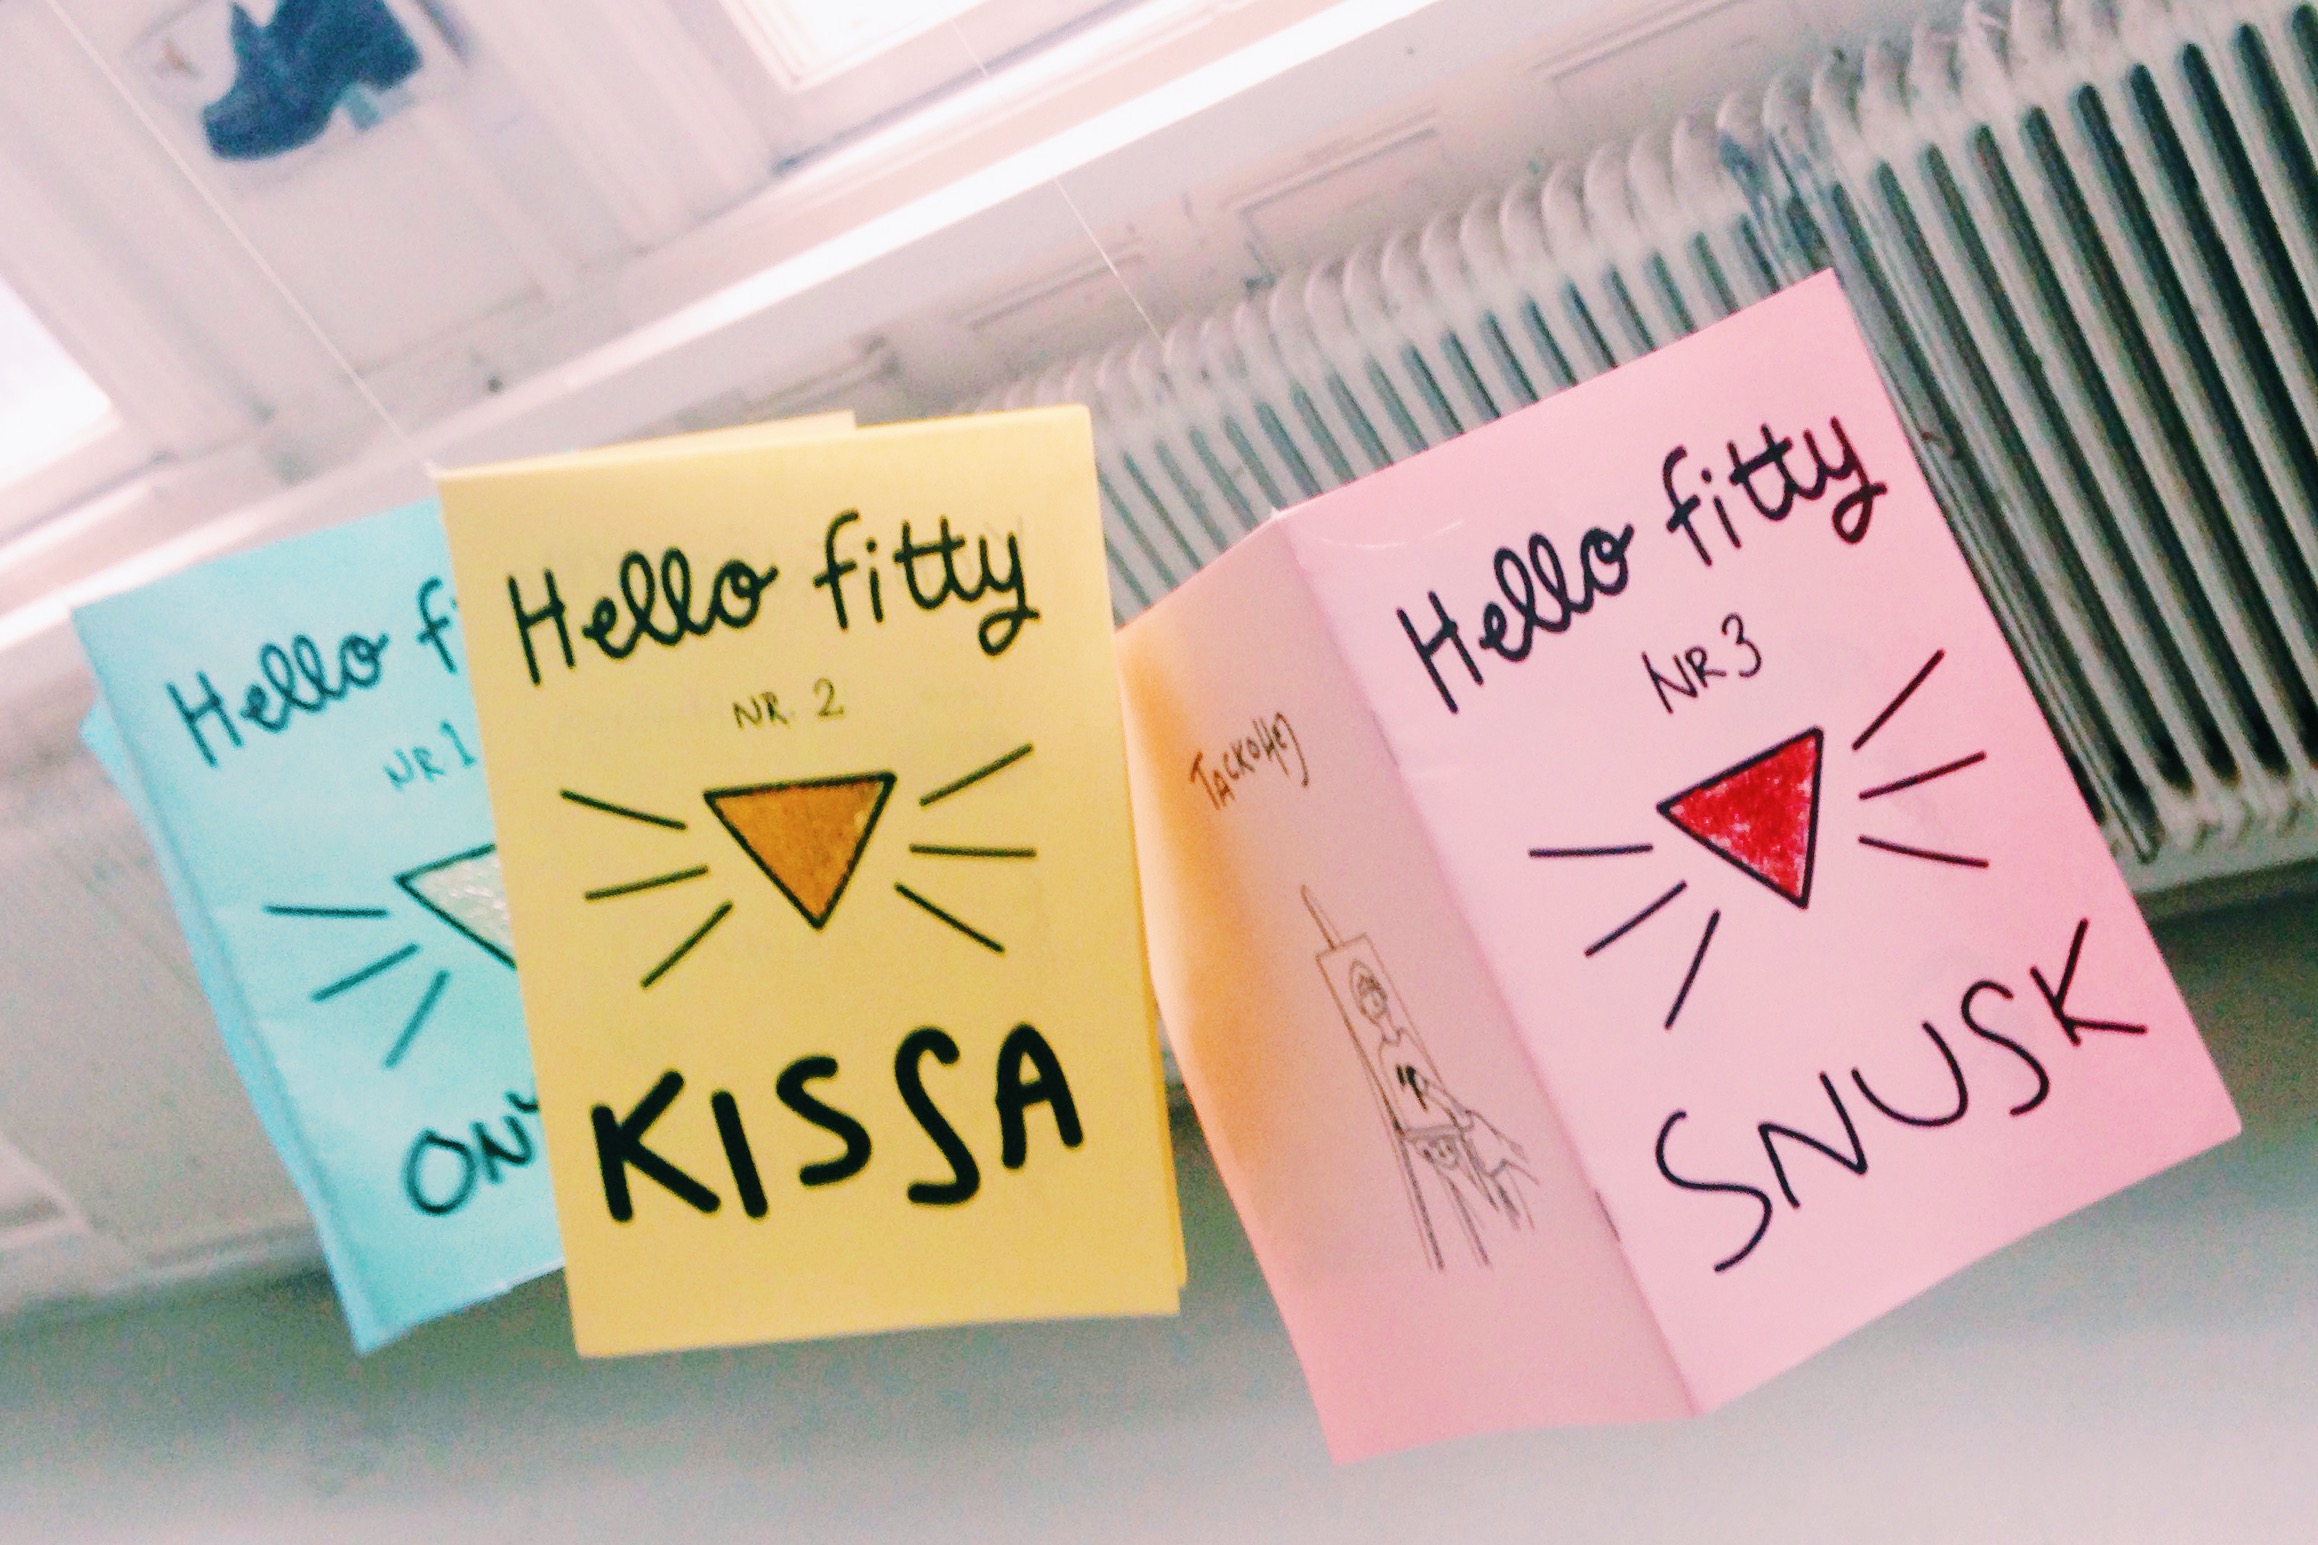 Hello
NR 1
Hello fitty
NR. 2
KISSA
TACKOHEJ
Hello fitty
NR 3
SNUSK